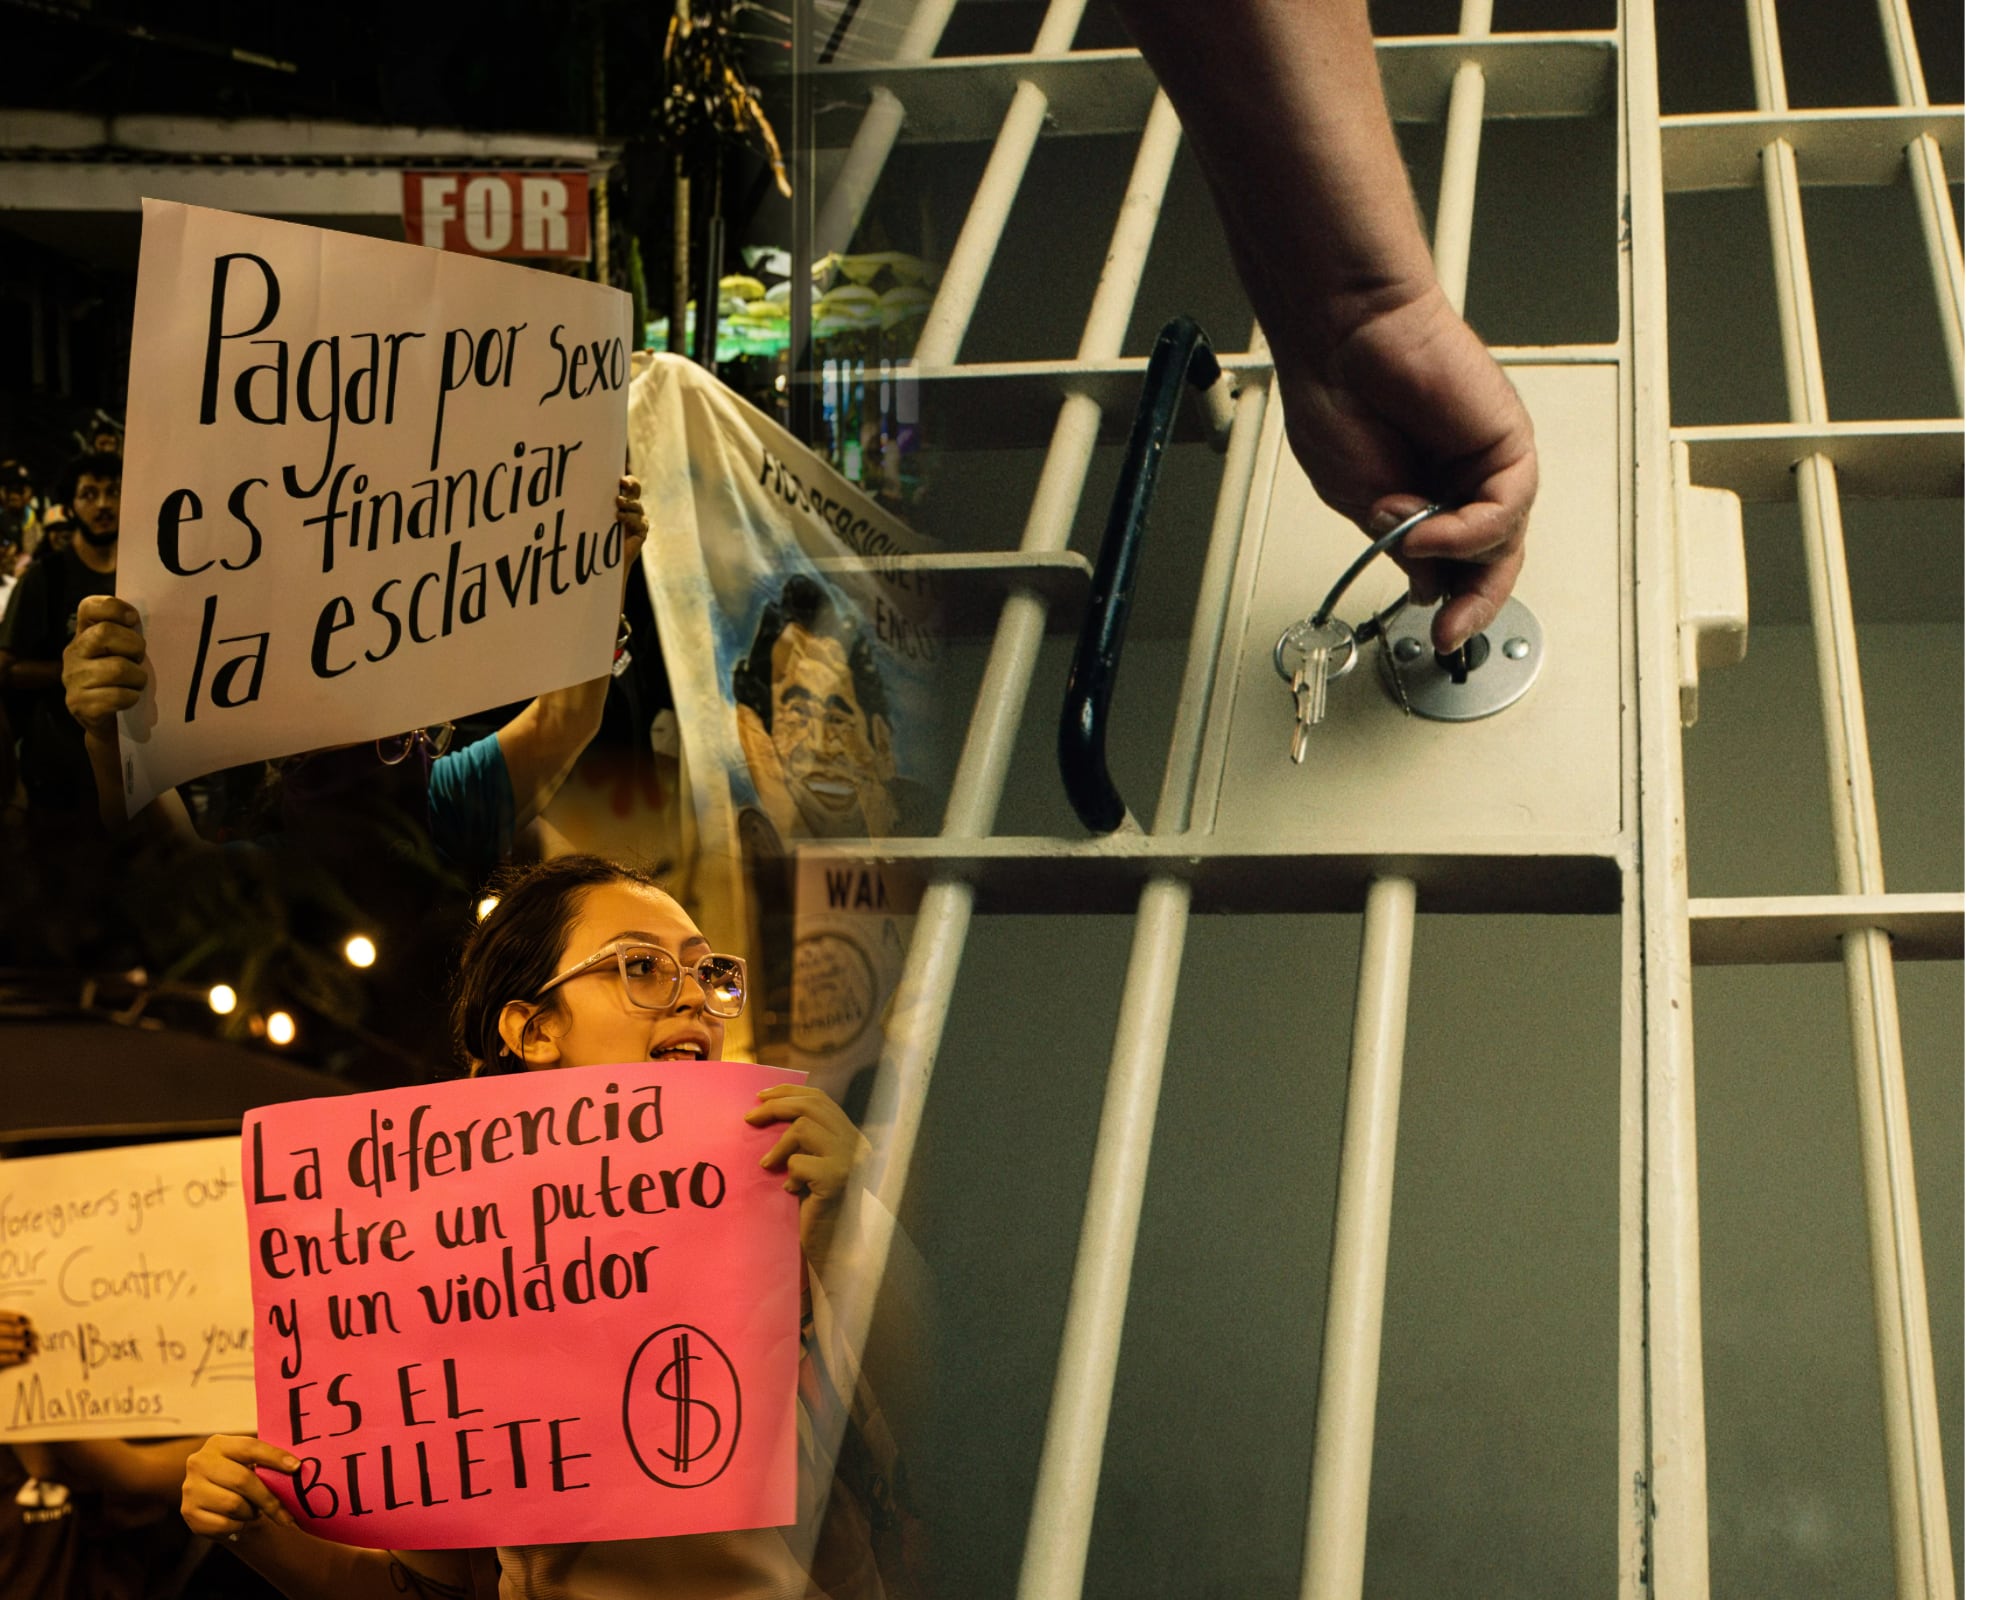 FOR
Pagar por sexo
es financiar
la esclavitud
FICO PERSIGUE
WAN
La diferencia
entre un putero
y un violador
ES EL
BILLETE
$
foreigners get out
our Country,
Back to your
MalParidos